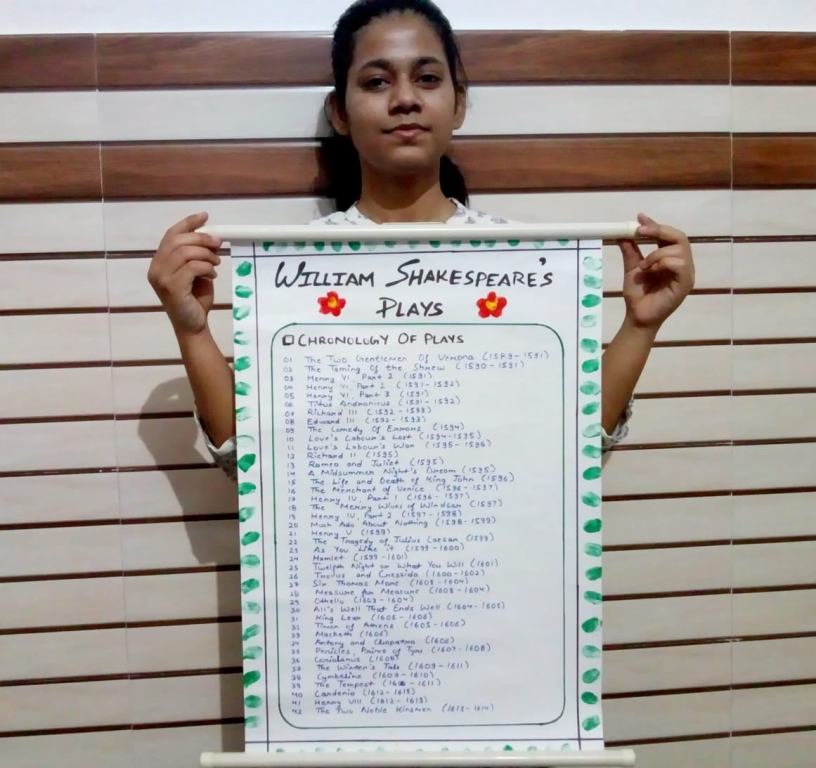 WILLIAM SHAKESPEARE'S
PLAYS
CHRONOLOGY OF PLAYS
01 The Two Gentlemen Of Verona (1589-1591)
02 The Taming Of the Shrew (1590-1591)
03 Henry VI Part 2 (1591)
04 Henry VI, Part 1 (1591-1592)
05 Henry VI, Part 3 (1591)
06 Titus Andronicus (1591-1592)
07 Richard III (1592-1593)
08 Edward III (1592-1593)
09 The Comedy Of Errors (1594)
10 Love's Labour's Lost (1594-1595)
11 Love's Labour's Won (1595-1596)
12 Richard II (1595)
13 Romeo and Juliet (1595)
14 A Midsummer Night's Dream (1595)
15 The Life and Death of King John (1596)
16 The Merchant of Venice (1596-1597)
17 Henry IV, Part 1 (1596-1597)
18 The Merry Wives of Windsor (1597)
19 Henry IV, Part 2 (1597-1598)
20 Much Ado About Nothing (1598-1599)
21 Henry V (1599)
22 The Tragedy of Julius Caesar (1599)
23 As You Like it (1599-1600)
24 Hamlet (1599-1601)
25 Twelfth Night or What You Will (1601)
26 Troilus and Cressida (1600-1602)
27 Sir Thomas More (1603-1604)
28 Measure for Measure (1603-1604)
29 Othello (1603-1604)
30 All's Well That Ends Well (1604-1605)
31 King Lear (1605-1606)
32 Timon of Athens (1605-1606)
33 Macbeth (1606)
34 Antony and Cleopatra (1606)
35 Pericles, Prince of Tyre (1607-1608)
36 Coriolanus (1608)
37 The Winter's Tale (1609-1611)
38 Cymbeline (1609-1610)
39 The Tempest
40 Cardenio (1612-1613)
41 Henry VIII (1612-1613)
42 The Two Noble Kinsmen (1613-1614)